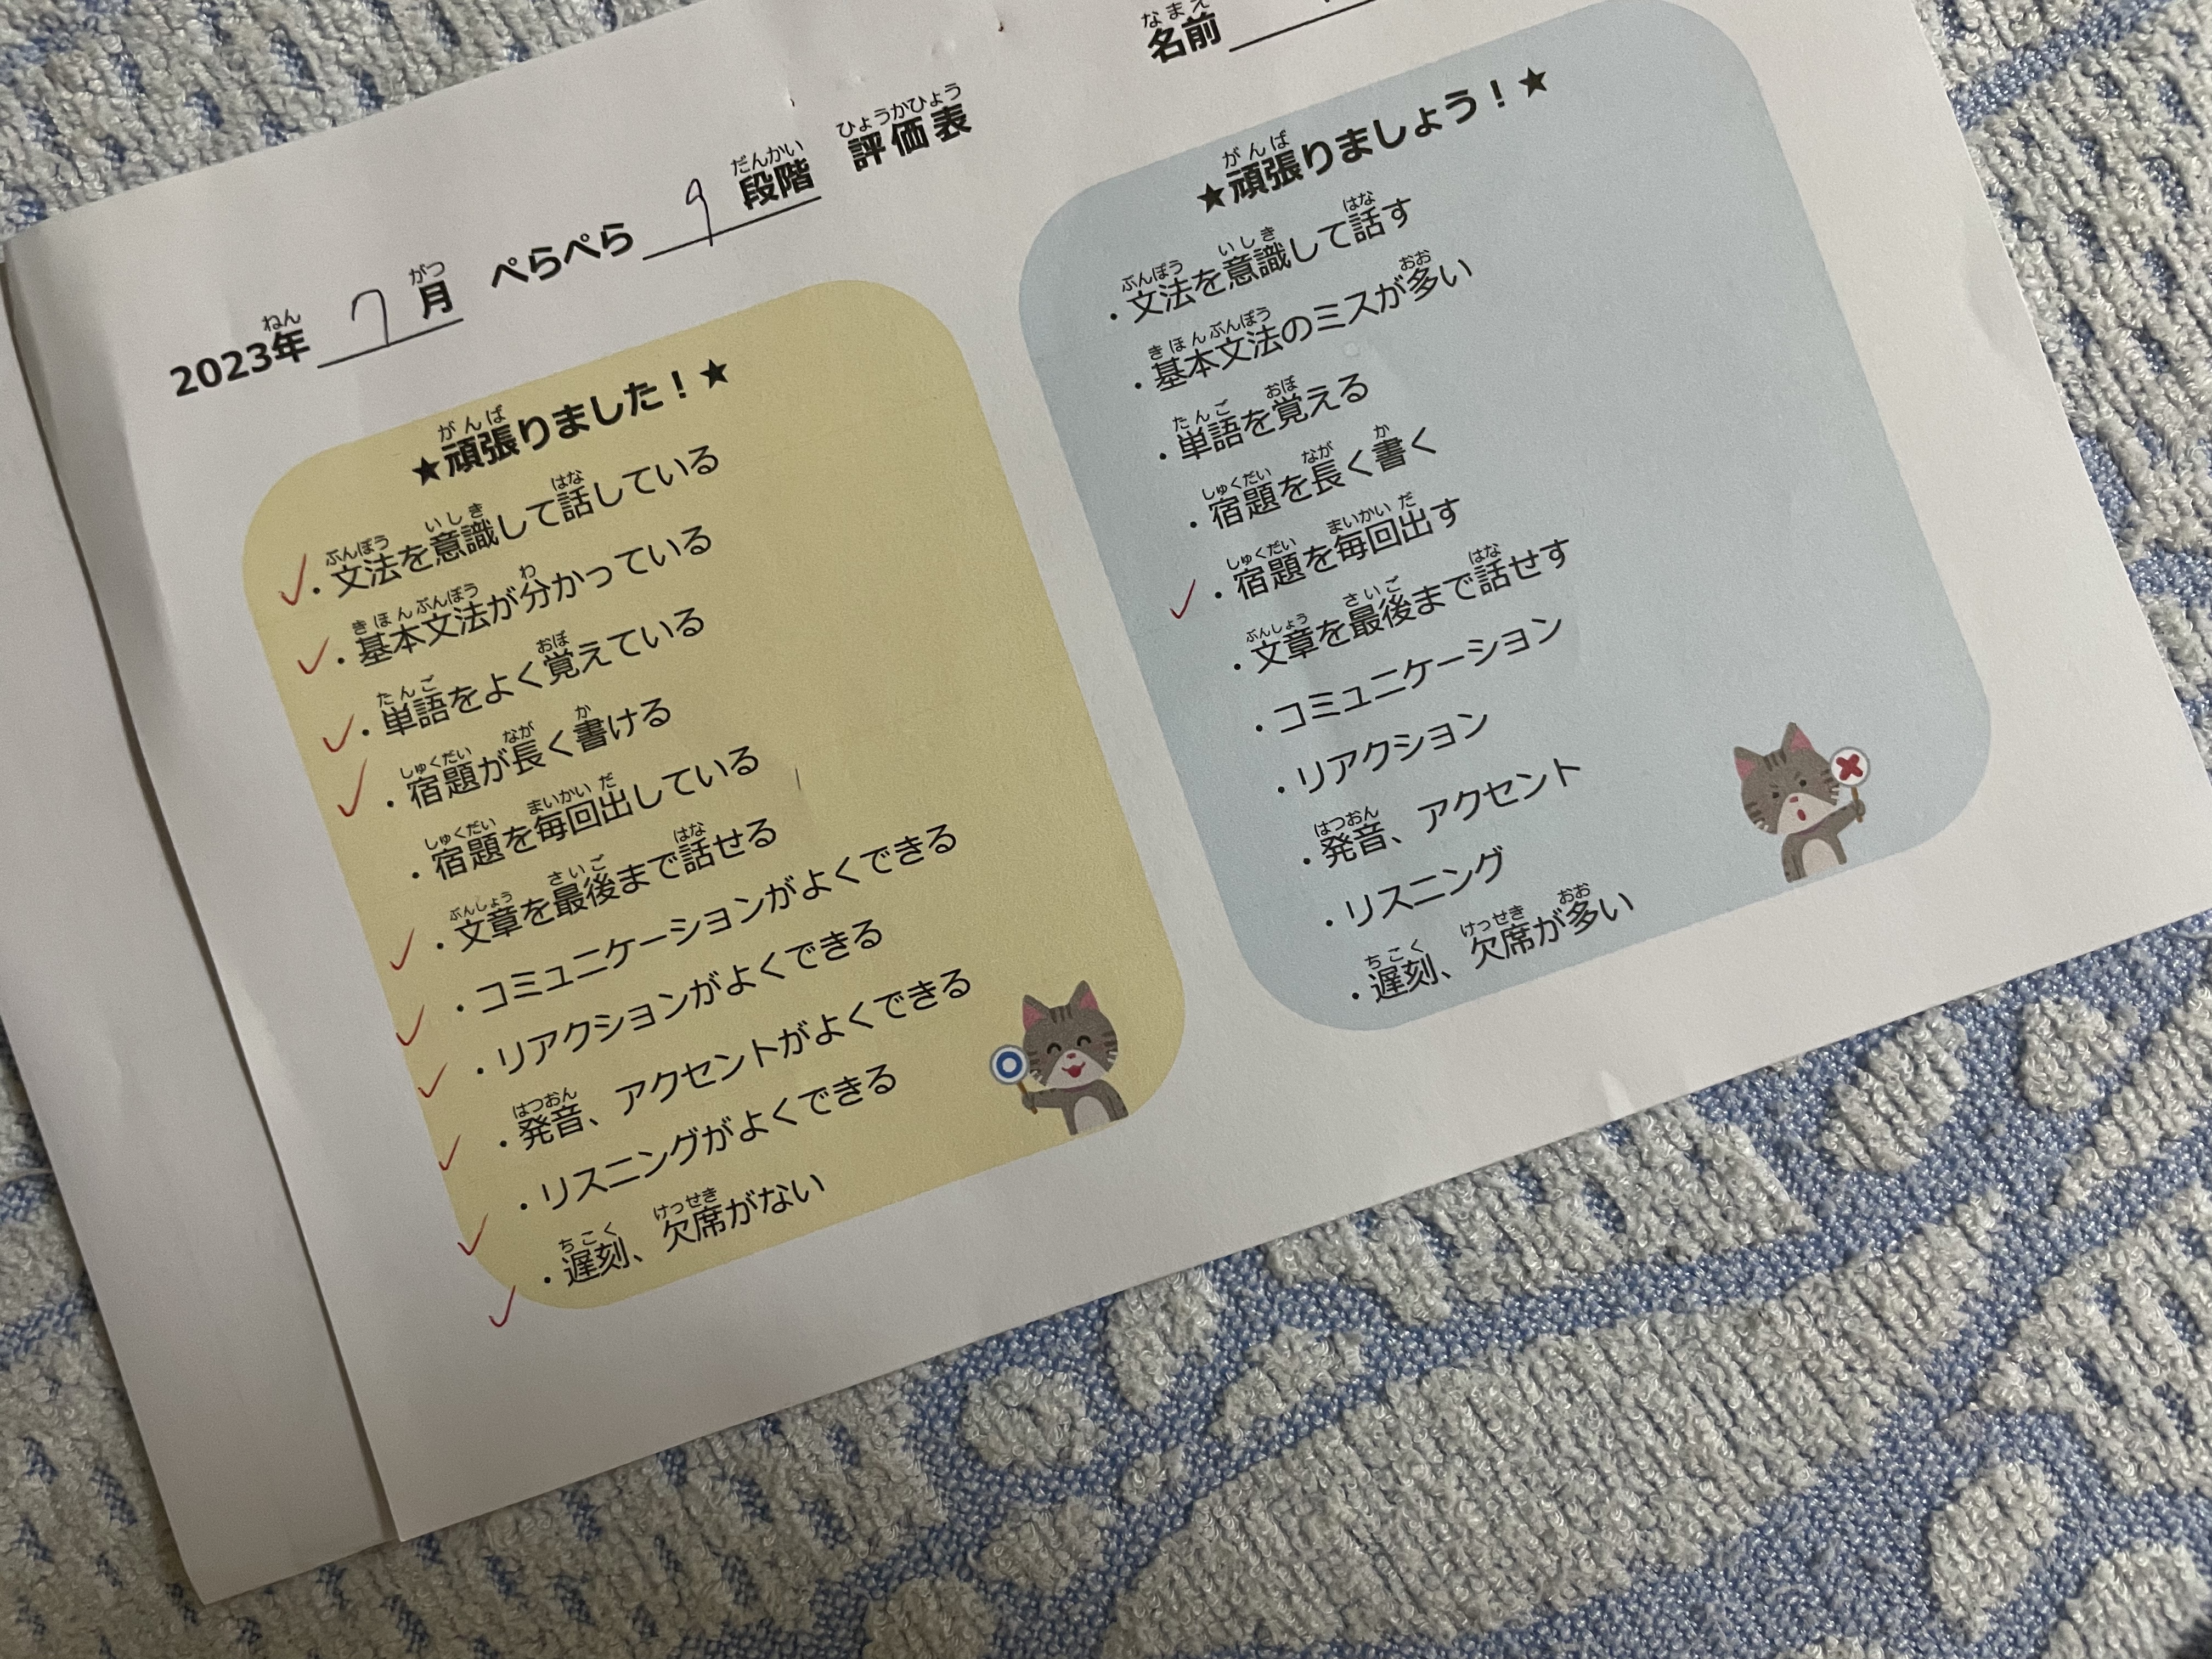 名前
2023年 7 月 ぺらぺら 9 段階 評価表
★頑張りました！★
・文法を意識して話している
・基本文法が分かっている
・単語をよく覚えている
・宿題が長く書ける
・宿題を毎回出している
・文章を最後まで話せる
・コミュニケーションがよくできる
・リアクションがよくできる
・発音、アクセントがよくできる
・リスニングがよくできる
・遅刻、欠席がない
★頑張りましょう！★
・文法を意識して話す
・基本文法のミスが多い
・単語を覚える
・宿題を長く書く
・宿題を毎回出す
・文章を最後まで話せす
・コミュニケーション
・リアクション
・発音、アクセント
・リスニング
・遅刻、欠席が多い